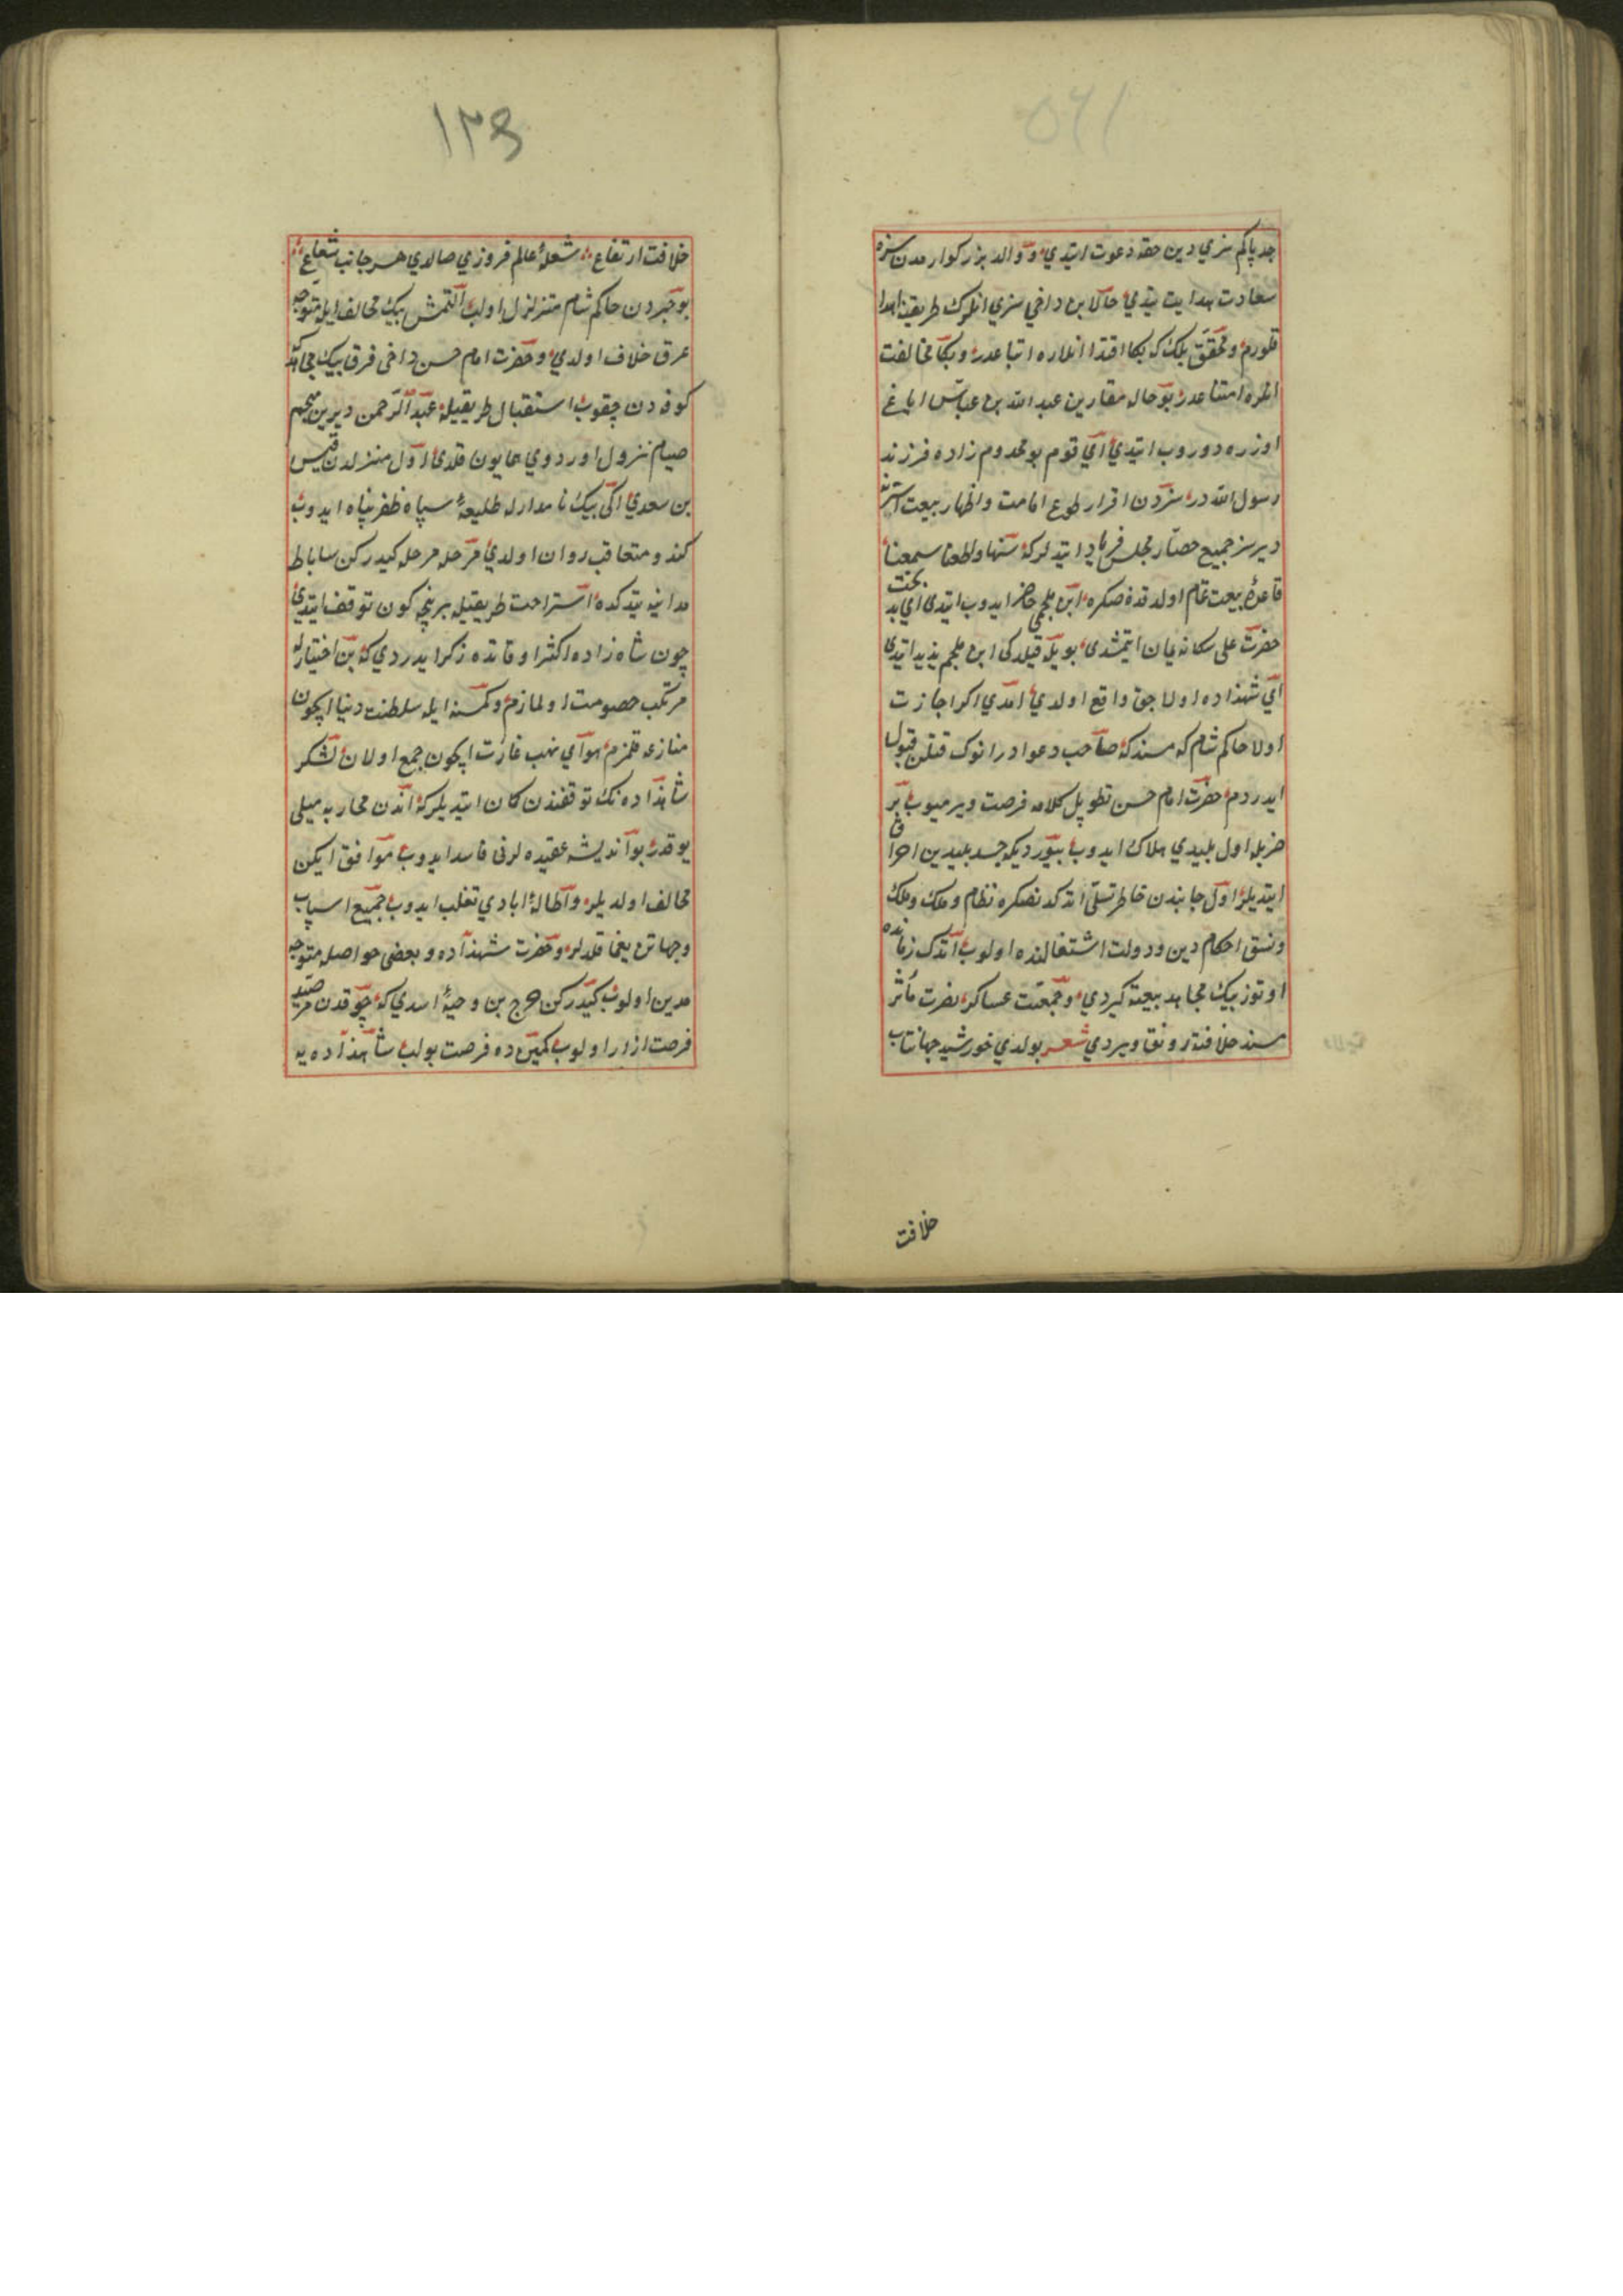 جد پاكم سزي دين حقه دعوت ايتدي و والد بزركوارمدن سزه
سعادت هدايت يتدي حالا بن داخي سزي انلروك طريقنه اهدا
قلورم و محقق بلك كه بكا اقتدا انلاره اتباعدر و بكا مخالفت
انلره امتناعدر بو حاله مقارن عبد الله بن عباس اياغ
اوزره دوروب ايتدي اي قوم بو مخدوم زاده فرزند
رسول الله در سزدن اقرار طوع امامت و اظهار بيعت استر نه
ديرسز جميع حضار مجلس فرياد ايتديلر كه سمعنا واطعنا سمعنا
قاعدۀ بيعت تمام اولدقدنصكره ابن ملجمي حاضر ايدوب ايتدي اي بد بخت
حضرت علي سكا نه يمان ايتمشدي بويله قيلدك ابن ملجم پليد ايتدي
اي شهزاده اولاجق واقع اولدي امدي اكر اجازت
اولا حاكم شام كه مسندكه صاحب دعوادر انوك قتلن قبول
ايدردم حضرت امام حسن تطويل كلامه فرصت ويرميوب بر
ضربله اول پليدي هلاك ايدوب بيورديكه جسد پليدين احراق
ايتديلر اول جانبدن خاطر تسلي اتدكدنصكره نظام ملك و ملك
ونسق احكام دين و دولت اشتغالنده اولوب اندك زمانده
اوتوز بيك مجاهد بيعته كيردي و جمعيت عساكر نصرت مآثر
مسند خلافته رونق ويردي شعر بولدي خورشيد جهانتاب
خلافت
١٣٤
خلافت ارتفاع شعلۀ عالم فروزي صالدي هر جانب شعاع
بو خبردن حاكم شام متزلزل اولب التمش بيك مخالف ايله متوجه
عرق خلاف اولدي و حضرت امام حسن داخي قرق بيك مجاهدله
كوفه دن چقوب استقبال طريقيله عبد الرحمن ديرين مخيم
خيام نزول اوردوي همايون قلدي اول منزلدن قيس
بن سعدي اكي بيك نامدارله طليعۀ سپاه ظفر پناه ايدوب
كندو متعاقب روان اولدي مرحله مرحله كيدركن ساباط
مداينه يتدكده استراحت طريقيله بر نيچه كون توقف ايتدي
چون شاه زاده اكثر اوقاتده ذكر ايدردي كه بن اختيارله
مرتكب خصومت اولمازم و كمسنه ايله سلطنت دنيا ايچون
منازعه قلمزم هواي نهب غارت ايچون جمع اولان لشكر
شاهزاده نك توقفندن كمان ايتديلر كه اندن محاربه ميلي
يوقدر بو انديشه عقيده لرني فاسد ايدوب موافق ايكن
مخالف اولديلر و اطالۀ ايادي تغلب ايدوب جميع اسباب
وجهاتن يغما قلديلر و حضرت شهزاده و بعضي خواصله متوجه
مدين اولوب كيدركن جراح بن وحيۀ اسدي كه چوقدن مترصد
فرصت ازار اولوب كمين ده فرصت بولب شاهزاده يه